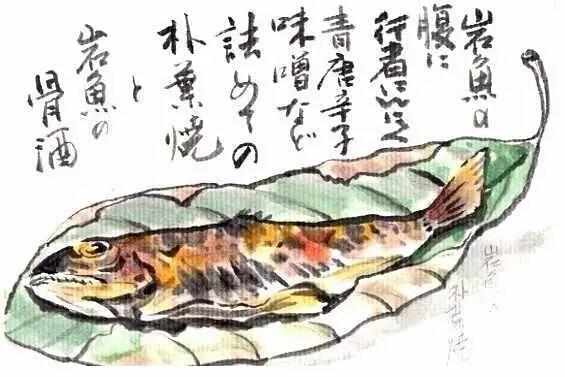 岩魚の
腹に
行者にんにく
青唐辛子
味噌など
詰めての
朴葉焼
と
岩魚の
骨酒
岩魚の
朴葉焼